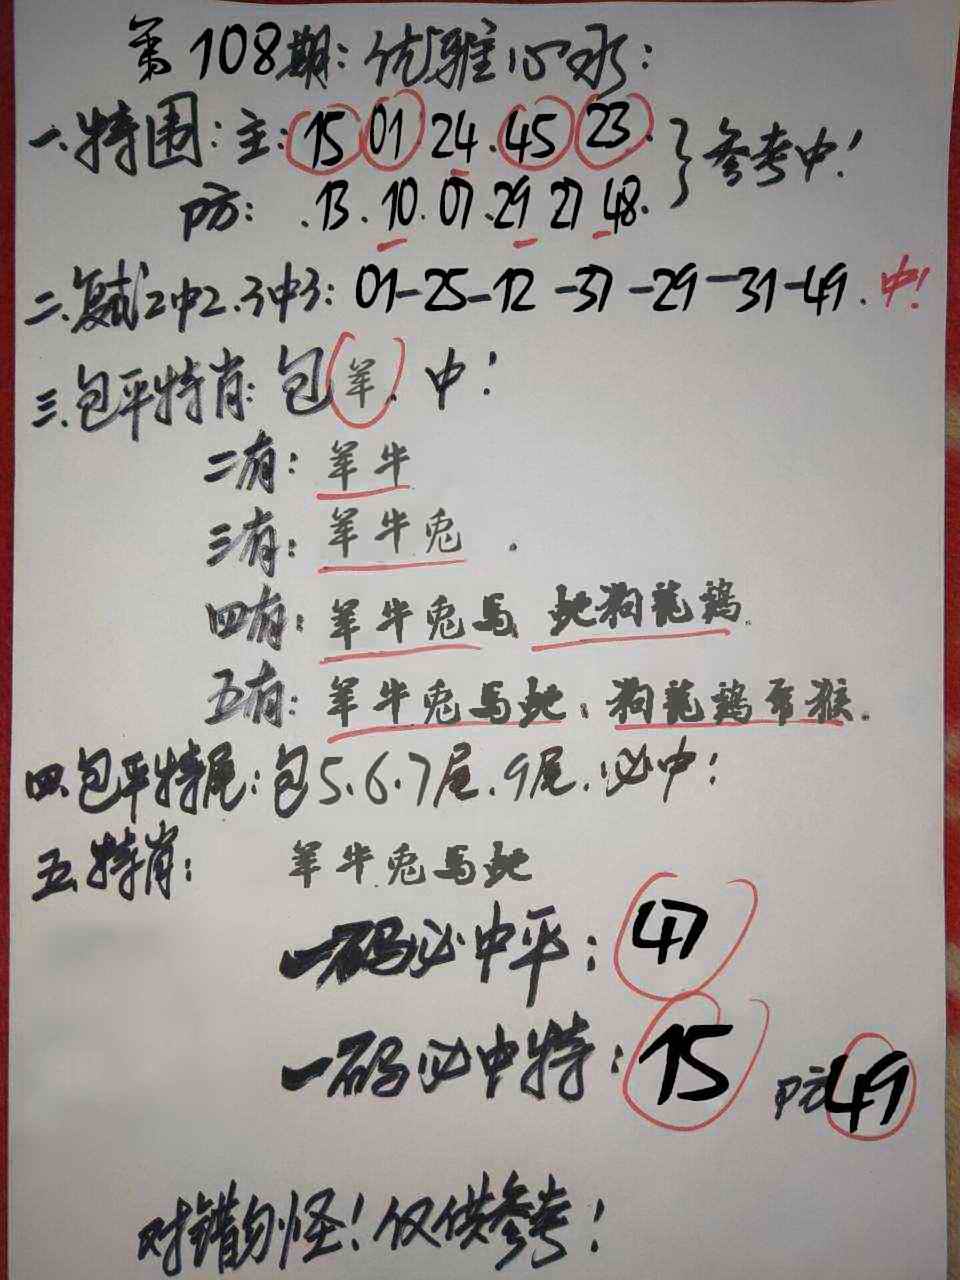 第108期：优雅心水：
一.特围：主：15 01 24.45 23. }参考中！
防：.13.10.07.29 27 48.
二.复试2中2.3中3：01-25-12-37-29-31-49.中！
三.包平特肖：包羊.中！
二有：羊牛.
三有：羊牛兔.
四有：羊牛兔马 蛇狗龙鸡.
五有：羊牛兔马蛇：狗龙鸡 猴.
四.包平特尾：包5.6.7尾.9尾.必中！
五.特肖：羊牛.兔马蛇
一码必中平：47
一码必中特：15 防49
对错勿怪！仅供参考！